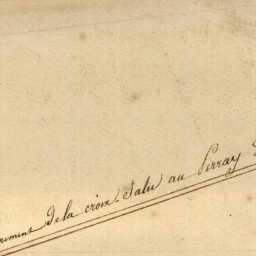 de la croix Salu au Perray